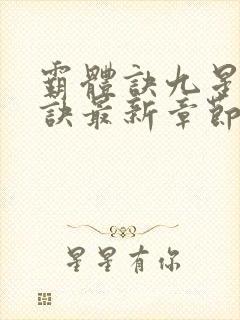 霸體訣九星
訣最新章節
星星有你